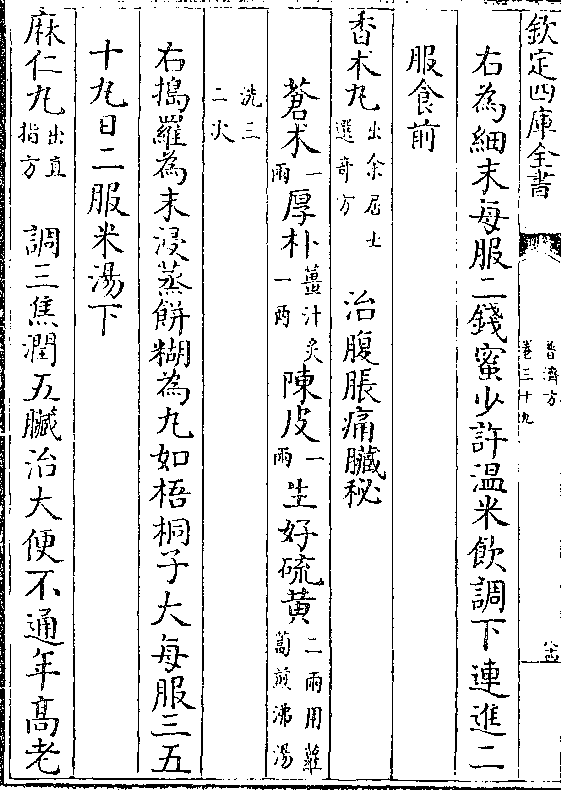 欽定四庫全書
普濟方
卷三十九
右為細末每服二錢蜜少許温米飲調下連進二
服食前
香术丸出余居士選奇方 治腹脹痛臟秘
蒼术一兩厚朴薑汁炙一两陳皮一兩生好硫黄二兩用蘿蔔煎沸湯
洗三二次
右搗羅為末浸蒸餅糊為丸如梧桐子大每服三五
十丸日二服米湯下
麻仁丸出直指方 調三焦潤五臟治大便不通年髙老